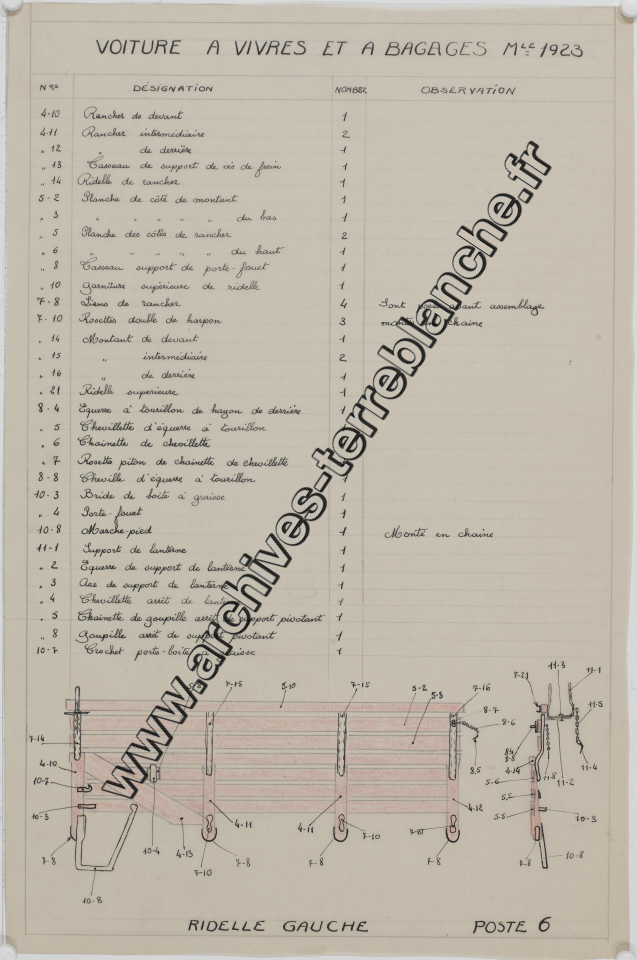 VOITURE A VIVRES ET A BAGAGES Mle 1923
Nos DÉSIGNATION NOMBRE OBSERVATION
4-10 Rancher de devant 1
4-11 Rancher intermédiaire 2
" 12 " de derrière 1
" 13 Tasseau de support de vis de frein 1
" 14 Ridelle de rancher 1
5-2 Planche de côté de montant 1
" 3 " " " " " du bas 1
" 5 Planche des côtés de rancher 2
" 6 " " " " " du haut 1
" 8 Tasseau support de porte-fouet 1
" 10 Garniture supérieure de ridelle 1
7-8 Liens de rancher 4 Sont posés avant assemblage
7-10 Rosettes double de harpon 3 montés en chaine
" 14 Montant de devant 1
" 15 " intermédiaire 2
" 16 " de derrière 1
" 21 Ridelle superieure 1
8-4 Equerre à tourillon de hayon de derrière 1
" 5 Chevillette d'équerre à tourillon 1
" 6 Chainette de chevillette 1
" 7 Rosette piton de chainette de chevillette 1
8-8 Cheville d'équerre à tourillon 1
10-3 Bride de boîte à graisse 1
" 4 Porte-fouet 1
10-8 Marche-pied 1 Monté en chaine
11-1 Support de lanterne 1
" 2 Equerre de support de lanterne 1
" 3 Axe de support de lanterne 1
" 4 Chevillette arrêt de lanterne 1
" 5 Chainette de goupille arrêt de support pivotant 1
" 8 Goupille arrêt de support pivotant 1
10-7 Crochet porte-boîte à graisse 1
www.archives-terreblanche.fr
7-15 5-10 7-15 5-2 5-3 7-16
8-7
8-6
8,5
7-14
4-10
10-7
10-3
7-8
10-8
10-4
4-13
4-11
7-10
7-8
4-11
7-10
7-8
7-10
7-8
4-12
7-21 11-3 11-1
11-5
8-4
8-8
4-14
11-8 11-2 11-4
5-6
5,5
5-5
10-3
7-8
10-8
RIDELLE GAUCHE POSTE 6